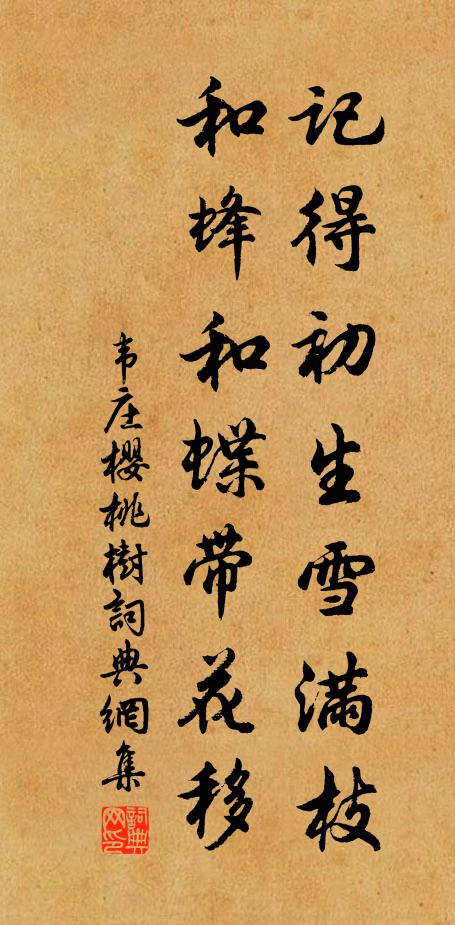 记得初生雪满枝
和蜂和蝶带花移
韦庄樱桃樹詞典網集
詞典网印